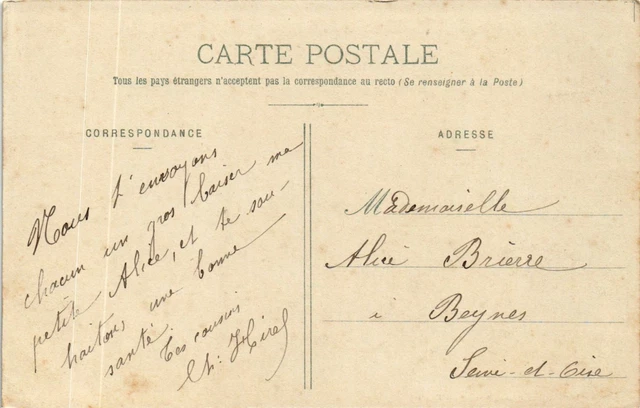 CARTE POSTALE
Tous les pays étrangers n'acceptent pas la correspondance au recto (Se renseigner à la Poste)
CORRESPONDANCE
Nous t'envoyons
chacun un gros baiser ma
petite Alice, et te sou-
haitons une bonne
santé.
Tes cousins
Ch: Hirel
ADRESSE
Mademoiselle
Alice Brierre
à Beynes
Seine-et-Oise